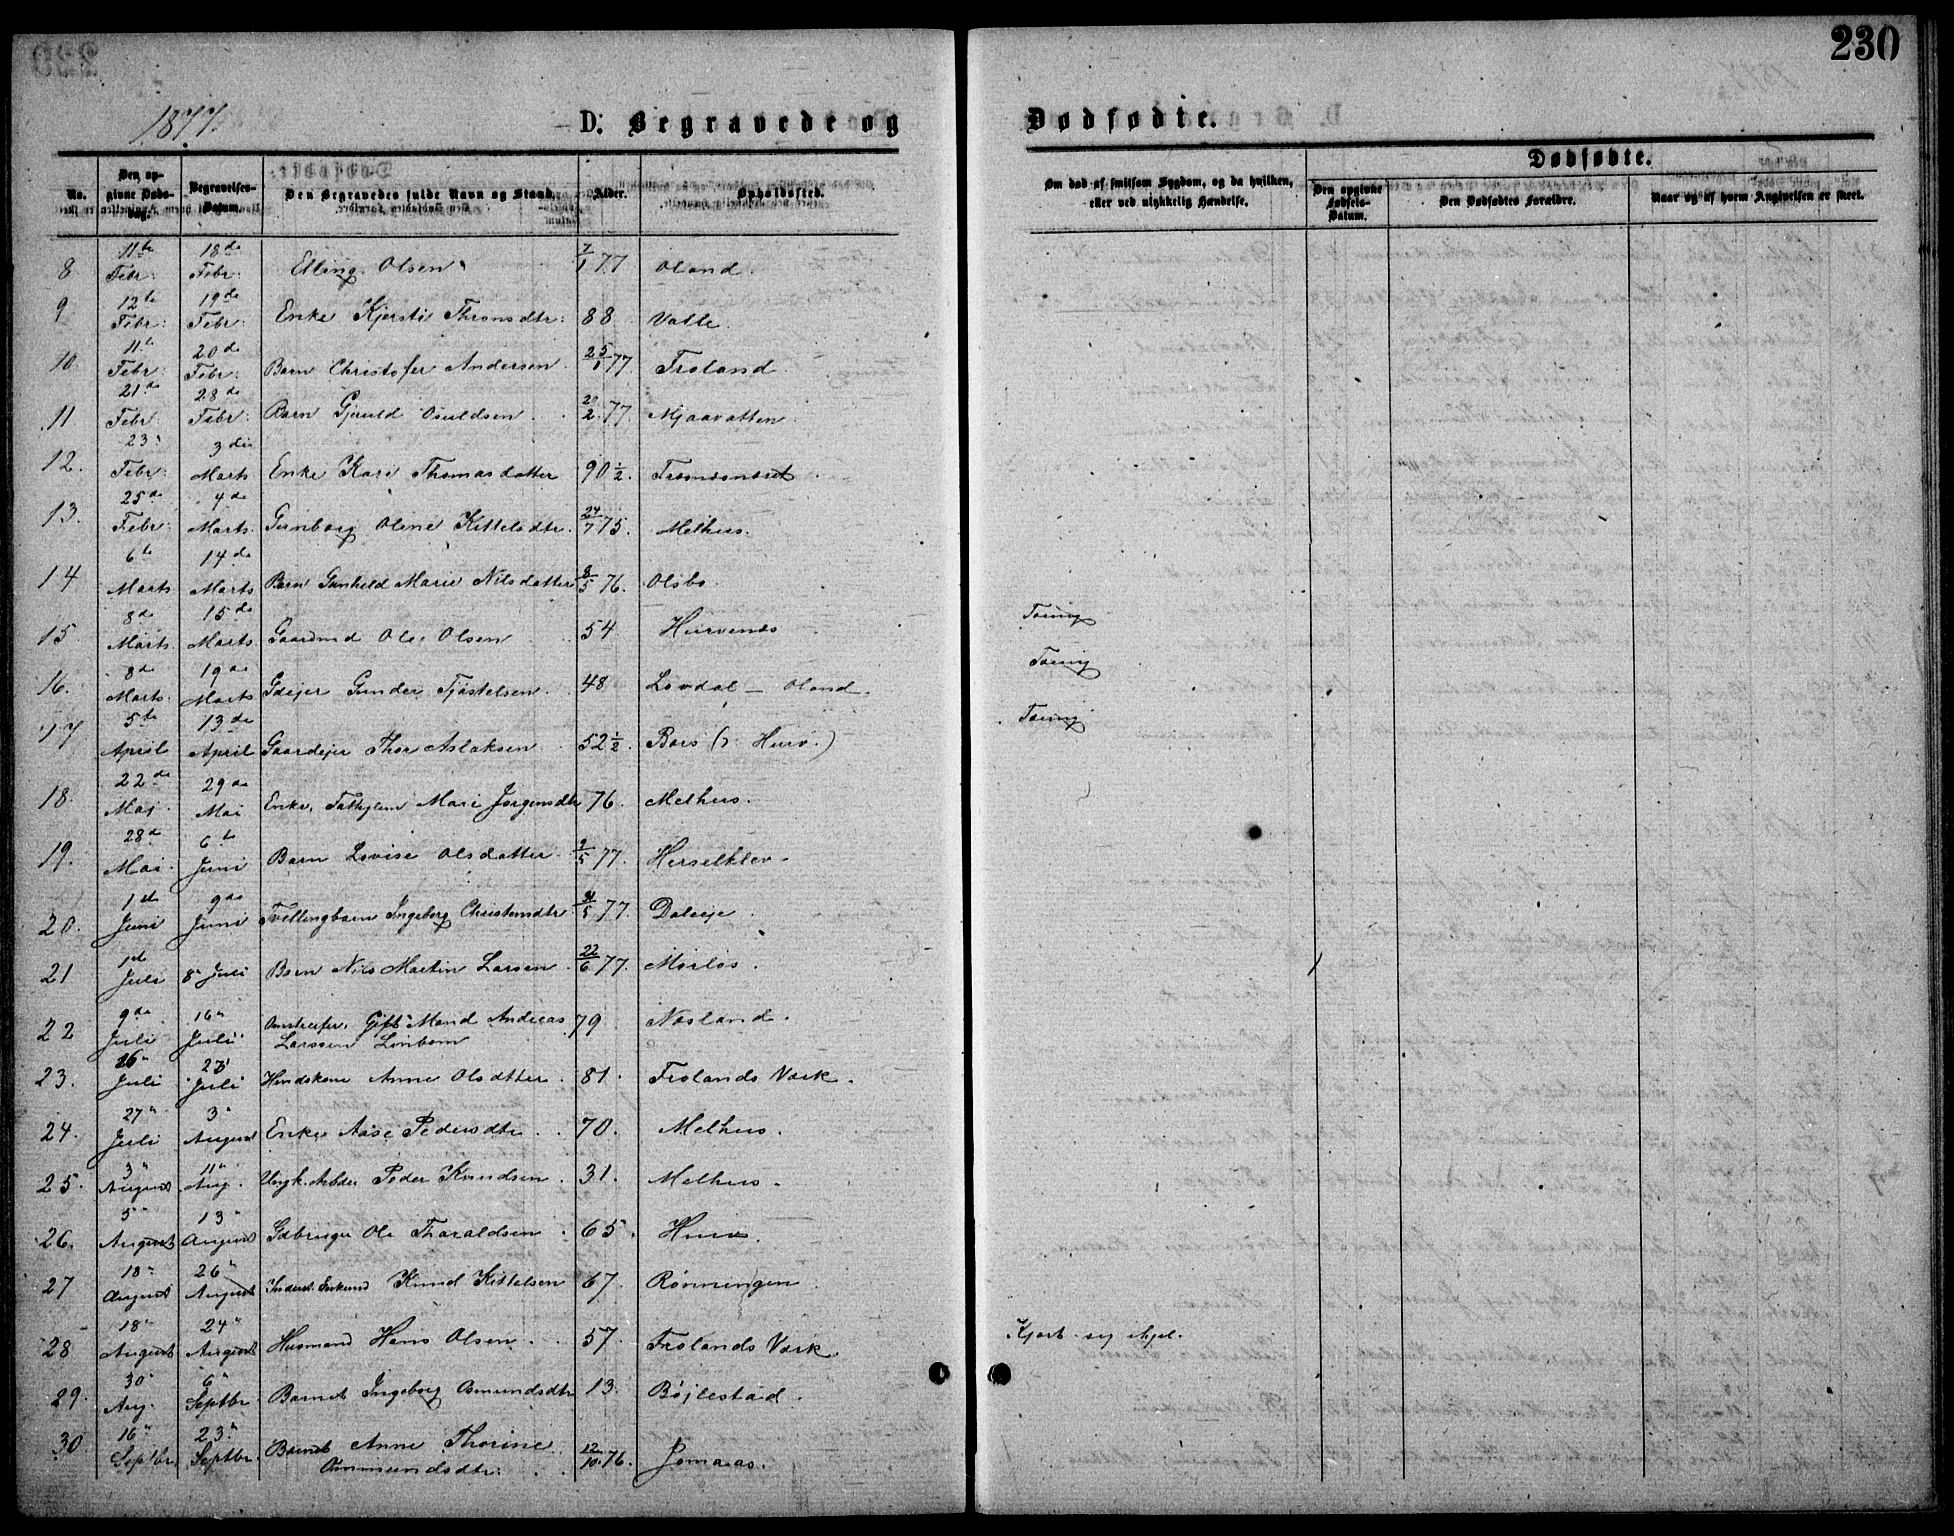 230
1877.
D: Begravede og Dødfødte.
No.
Den opgivne Dødsdag.
Begravelses-Datum.
Den Begravedes fulde Navn og Stand.
Alder.
Opholdssted.
Om død af smitsom Sygdom, og da hvilken, eller ved ulykkelig Hændelse.
Dødfødte.
Den opgivne Fødsels-Datum.
Den Dødfødtes Forældre.
Naar og af hvem Angivelsen er skeet.
8 11te Febr: 18de Febr: Elling Olsen 7/1 77 Oland.
9 12te Febr: 19de Febr: Enke Kjersti Thronsdtr: 88 Valle.
10 11te Febr: 20de Febr: Barn Christofer Andersen 25/1 77 Froland.
11 21de Febr: 28de Febr: Barn Gjeruld Osuldsen 20/2 77 Mjaavatten.
12. 23 Febr: 3die Marts Enke Kari Thomasdatter 90 1/2 Trøsnæsnæset
13. 25de Febr: 4de Marts Gunborg Oline Kittelsdtr. 24/7 75. Melhus.
14 6te Marts 14de Marts Barn Gunhild Marie Nilsdatter 8/5 76. Olsbo.
15 8de Marts 15de Marts Gaardmd Ole Olsen 54 Hurvenæs Tæring
16. 8de Marts. 19de Marts Gdejer Gunder Tjøstelsen. 48 Lovdal — Oland. Tæring
17 5te April 13de April Gaardejer Thor Aslaksen 52 1/2. Baas (i Hurv.) Tæring
18. 22de Maj. 29de Mai Enke, Fattiglem Mari Jørgensdtr 76. Melhus.
19. 28de Mai. 6te Juni Barn Lovise Olsdatter. 2/5 77. Herselklev.
20. 1ste Juni 9de Juni Tvillingbarn Ingeborg Christensdtr /5 77. Daleeje
21 1ste Juli 8" Juli Barn Nils Martin Larsen. 22/6 77. Mørløs.
22 9de Juli 16" Juli Omstreifer. Gift Mand Andreas
Larssen Linbom 79 Næsland.
23. 26" Juli 27" Juli Huuskone Anne Olsdtter. 81. Frolands Værk.
24. 27" Juli 3" August Enke Aase Pedersdtr 70. Melhus.
25. 3" August 11" Aug. Ungk. Arbdr Peder Knudsen. 31. Melhus.
26. 5" August 13" August Gdbruger Ole Tharaldsen 65. Hurv.
27 18" August 26" August Inderst. Enkemd Knud Kittelsen 67. Rønningen
28 18" August 24" August Husmand Hans Olsen. 57. Frolands Værk. Kjørt sig ihjel.
29. 30" Aug. 6" Septbr. Barnet Ingeborg Osmundsdtr 13. Bøjlestad.
30 16" Septbr. 23" Septbr. Barnet Anne Thorine
Ommundsdtr: 12/10 76. Jomaas.